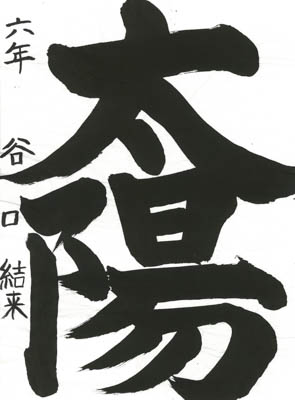 太陽
六年 谷口 結来